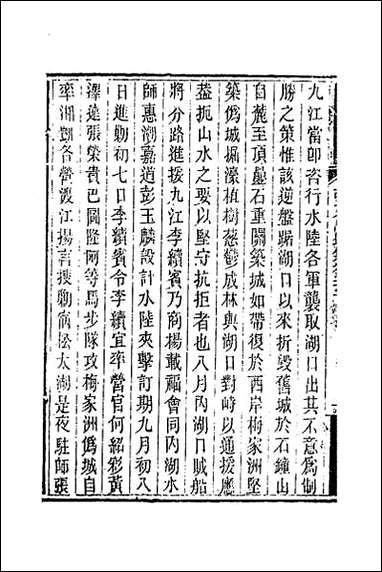 九江當即咨行水陸各軍襲取湖口出其不意爲制
勝之策惟該逆盤踞湖口以來折毀舊城於石鐘山
自麓至頂壘石重關築城如帶復於西岸梅家洲堅
築僞城掘濠植樹蔥鬱成林與湖口對峙以通援應
葢扼山水之要以堅守抗拒者也八月內湖口賊船
將分路進援九江李續賓乃商楊載福會同內湖水
師惠潮嘉道彭玉麟設計水陸夾擊訂期九月初八
日進勦初七日李續賓令李續宜率營官何紹彩黃
澤遠張榮貴巴圖隆阿等馬步隊攻梅家洲僞城自
率湘勇各營渡江揚言搜勦宿松太湖是夜駐師張